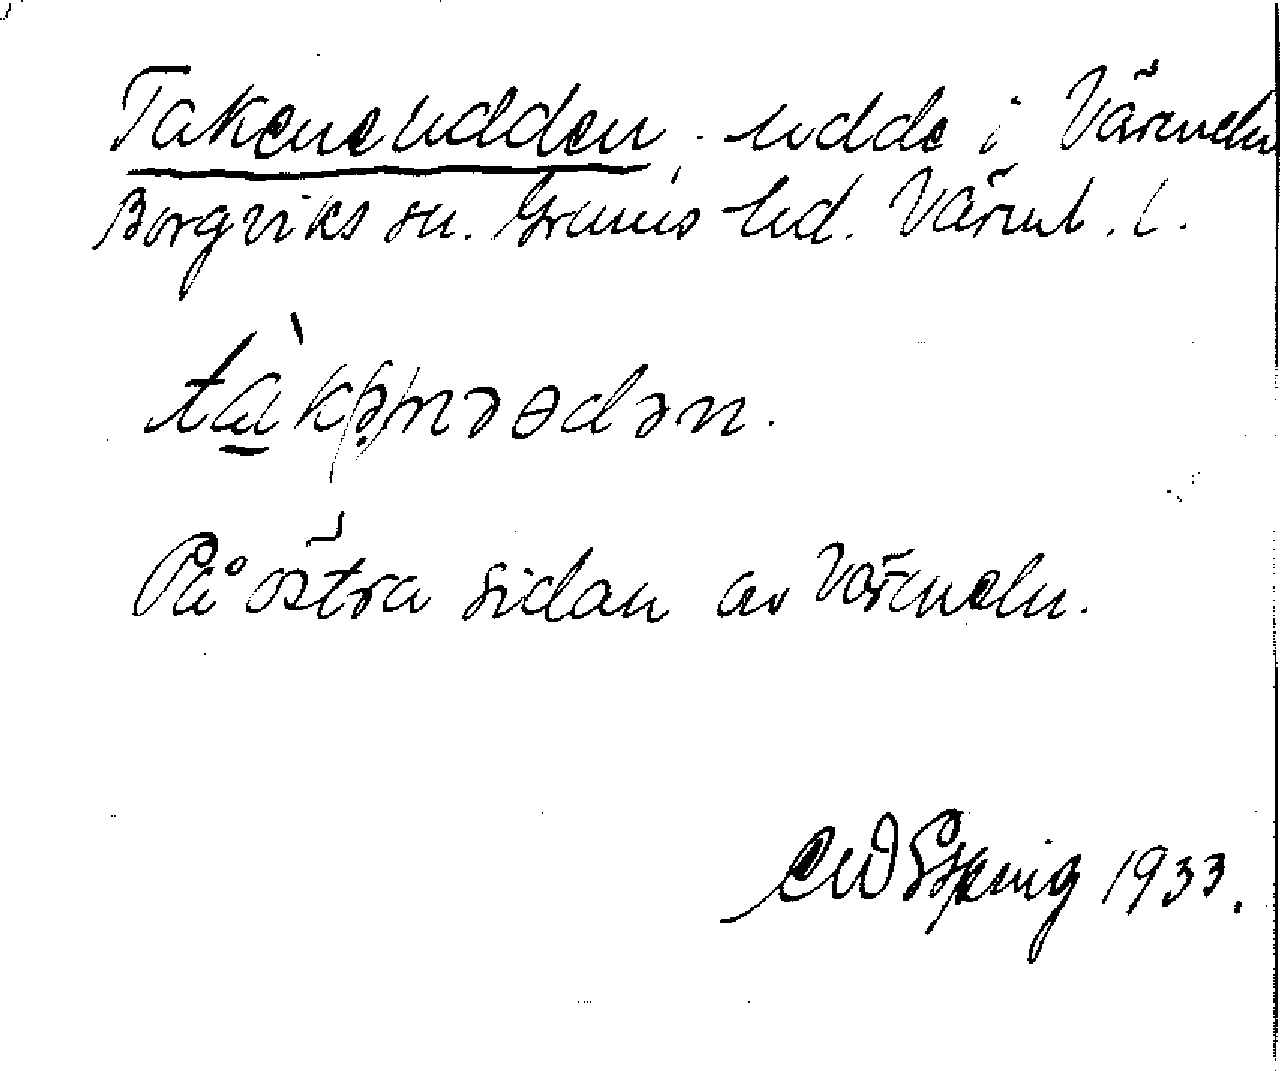 Takeneudden, udde i Värmeln
Borgviks sn. Grums hd. Värml. l.
tàk(ə̣)nəɵdən.
På östra sidan av Värmeln.
1933.